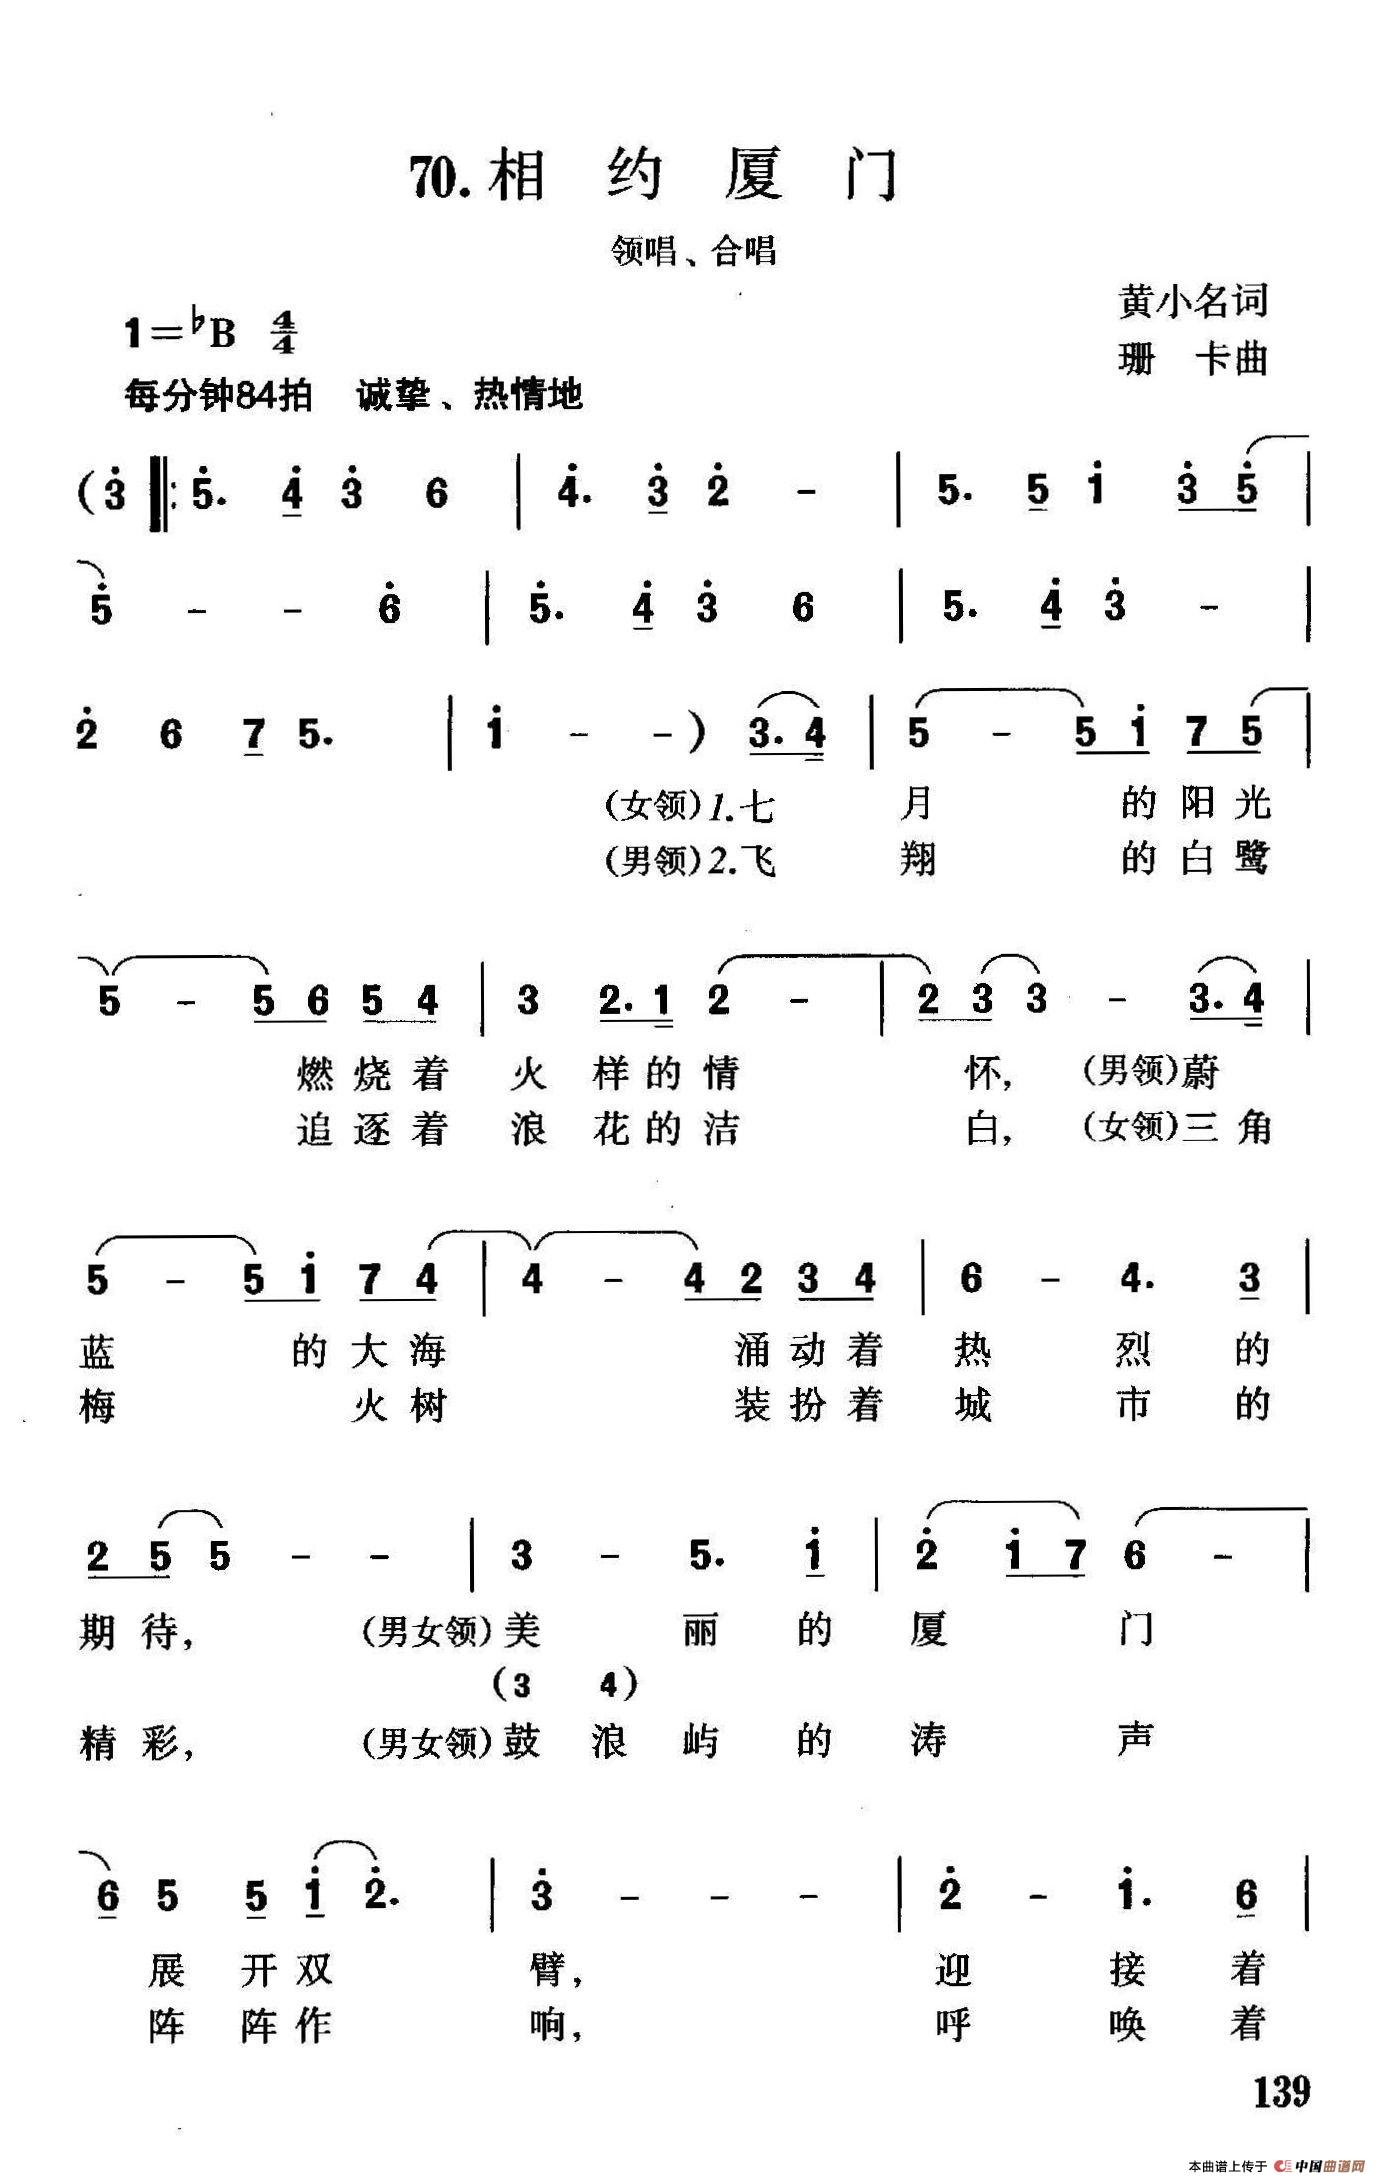 70.相 约 厦 门
领唱、合唱
黄小名词
1=♭B 4/4
珊 卡曲
每分钟84拍 诚挚、热情地
(3̇ ‖: 5̇. 4̇ 3̇ 6 | 4̇. 3̇ 2̇ - | 5. 5 1̇ 3̇ 5̇ |
5̇ - - 6̇ | 5̇. 4̇ 3̇ 6 | 5. 4̇ 3̇ - |
2̇ 6 7 5. | 1̇ - -) 3. 4 | 5 - 5 1̇ 7 5 |
(女领)1.七 月 的 阳 光
(男领)2.飞 翔 的 白 鹭
5 - 5 6 5 4 | 3 2. 1 2 - | 2 3 3 - 3. 4 |
燃 烧 着 火 样 的 情 怀, (男领)蔚
追 逐 着 浪 花 的 洁 白, (女领)三 角
5 - 5 1̇ 7 4 | 4 - 4 2 3 4 | 6 - 4. 3 |
蓝 的 大 海 涌 动 着 热 烈 的
梅 火 树 装 扮 着 城 市 的
2 5 5 - - | 3 - 5. 1̇ | 2̇ 1̇ 7 6 - |
期 待, (男女领)美 丽 的 厦 门
(3 4)
精 彩, (男女领)鼓 浪 屿 的 涛 声
6 5 5 1̇ 2̇. | 3̇ - - - | 2̇ - 1̇. 6 |
展 开 双 臂, 迎 接 着
阵 阵 作 响, 呼 唤 着
139
本曲谱上传于 中国曲谱网